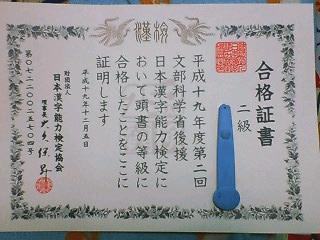 漢検
合格証書
二級
平成十九年度第二回
文部科学省後援
日本漢字能力検定に
おいて頭書の等級に
合格したことをここに
証明します
平成十九年十二月五日
財団法人
日本漢字能力検定協会
理事長